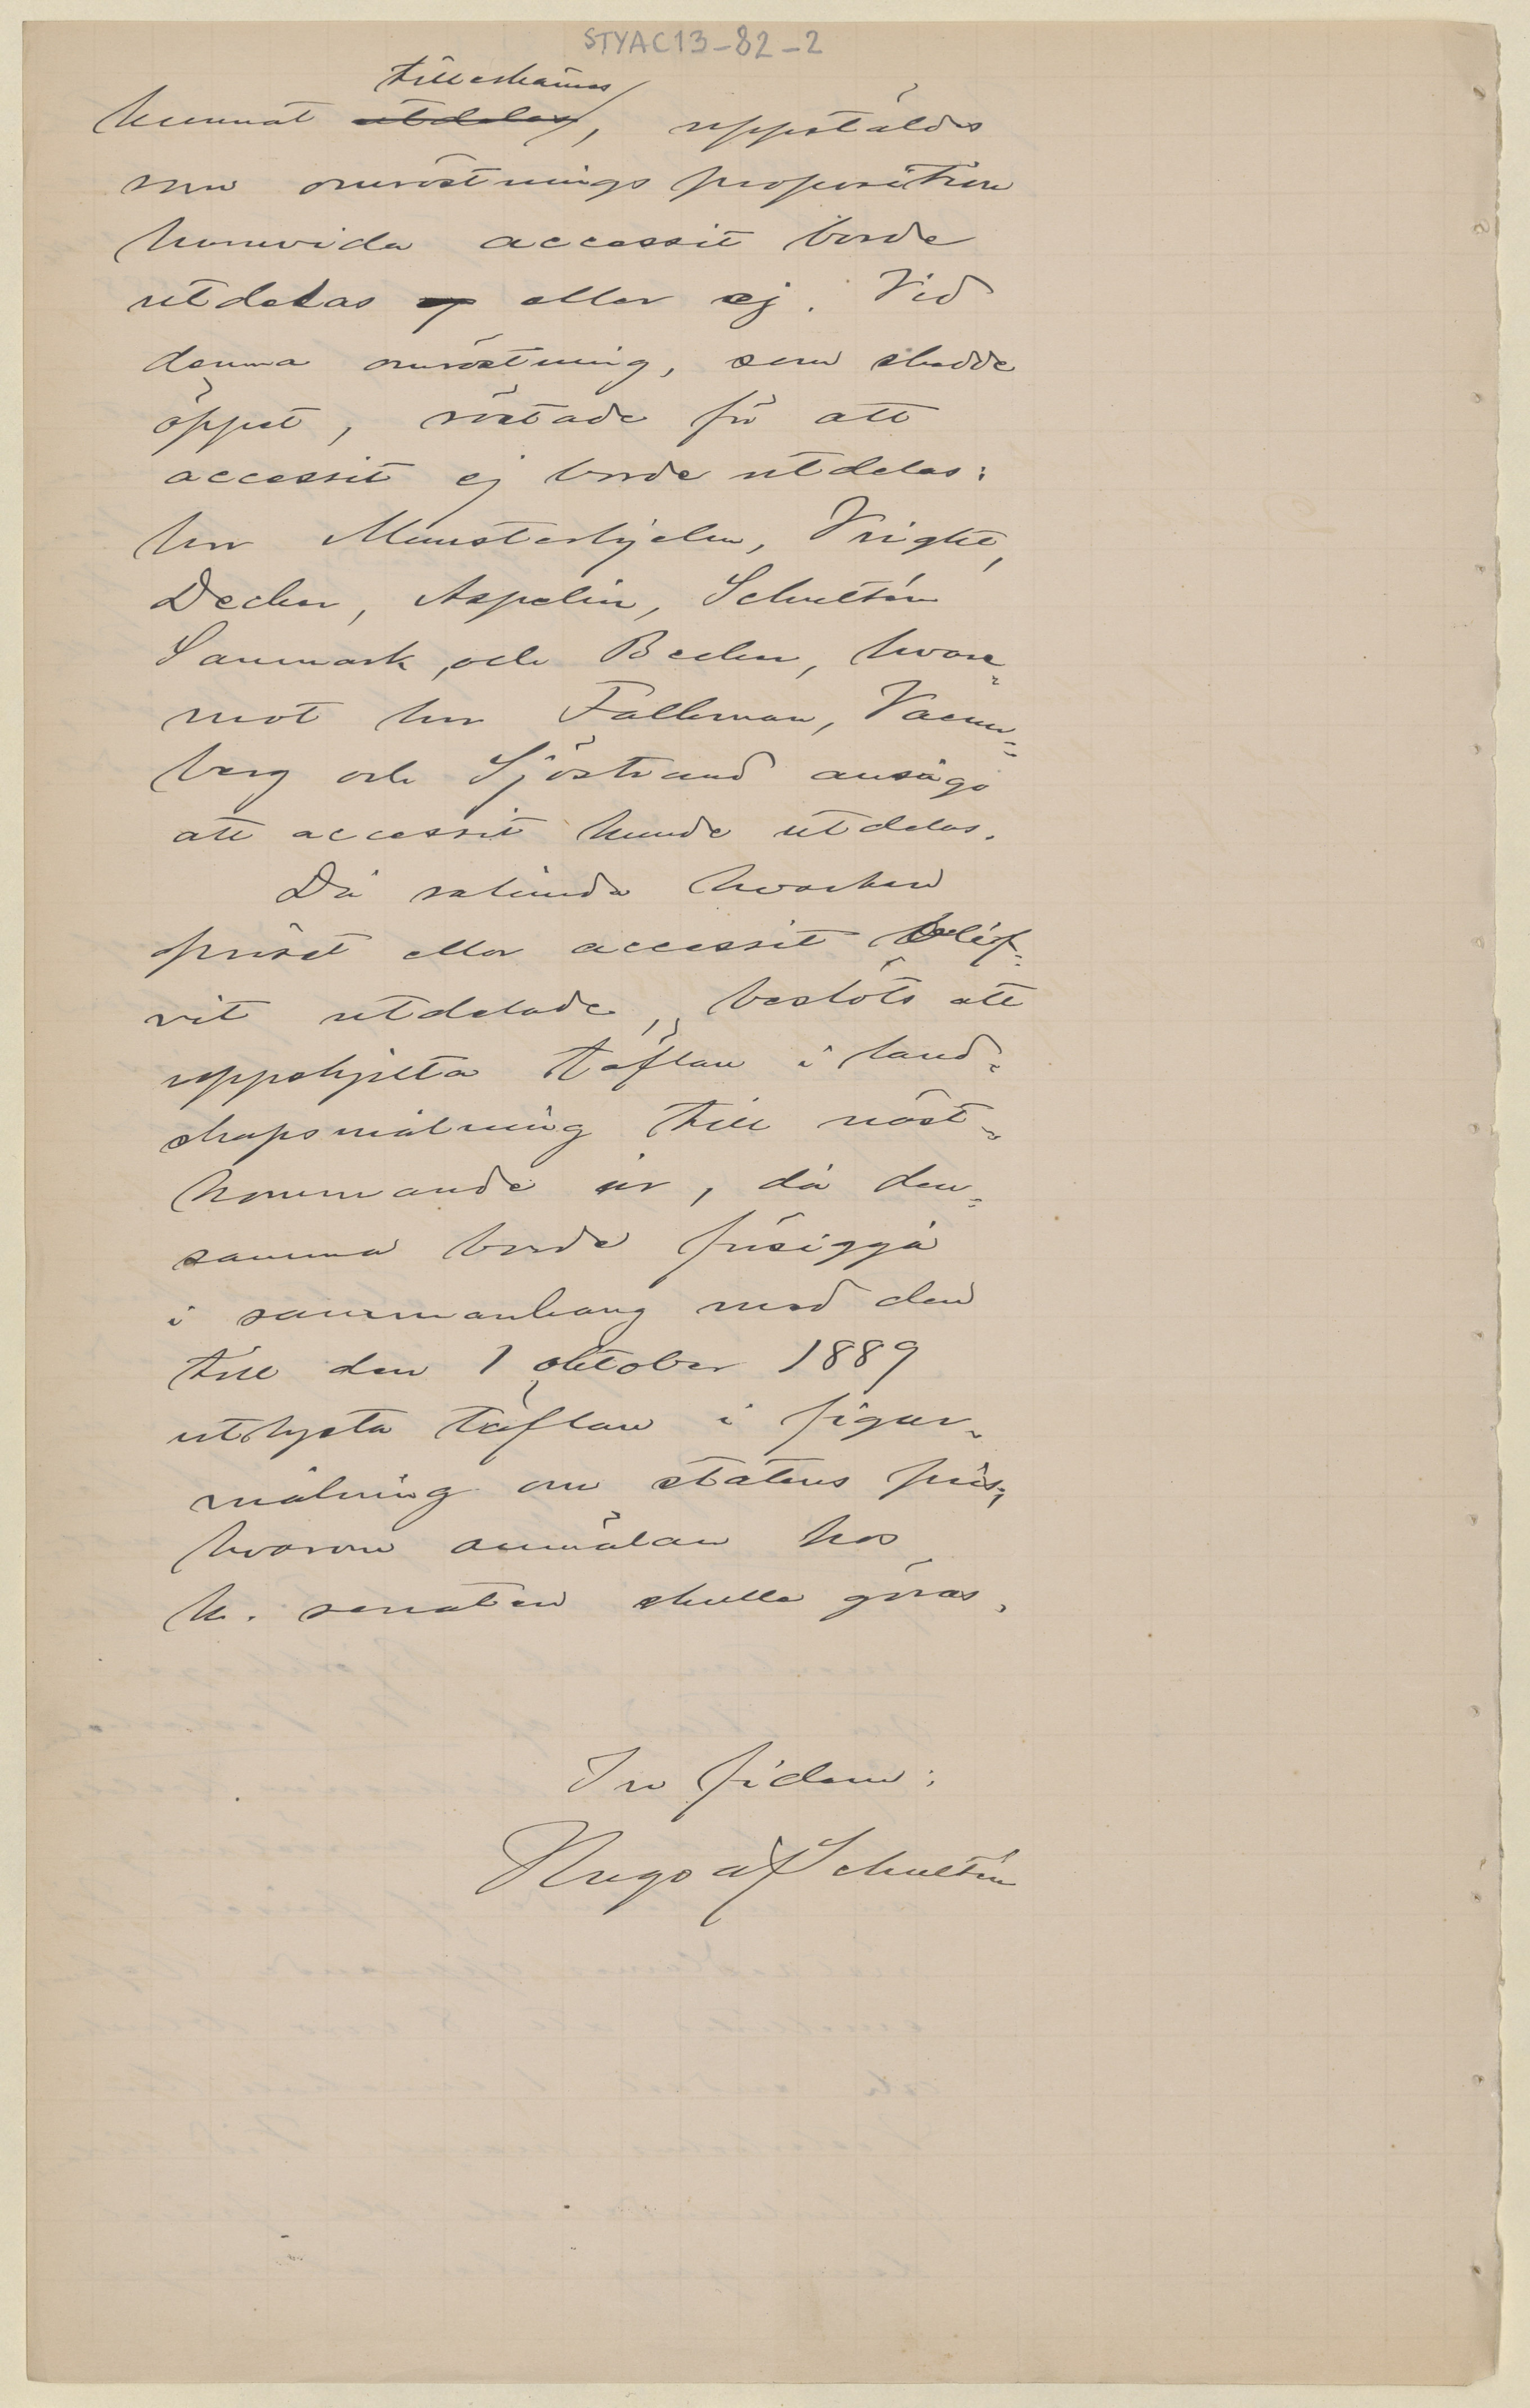 STYAC13-82-2
tillerkännas
kunnat utdelas, uppstäldes
nu omröstnings proposition
huruvida accessit borde
utdelas eller ej. Vid
denna omröstning, som skedde
öppet, röstade för att
accessit ej borde utdelas:
hrr Munsterhjelm, Vright,
Decker, Aspelin, Schultén
Sanmark, och Becker, hvare-
mot hrr Fallman, Vaener-
berg och Sjöstrand ansågo
att accessit kunde utdelas.
Då sålunda hvarken
priset eller accessit blif-
vit utdelade, beslöts att
uppskjuta täflan i land-
skapsmålning till näst-
kommande år, då den-
samma borde försiggå
i sammanhang med den
till den 1 oktober 1889
utlysta täflan i figur-
målning om statens pris,
hvarom anmälan hos
k. senaten skulle göras.
In fidem:
Hugo af Schultén